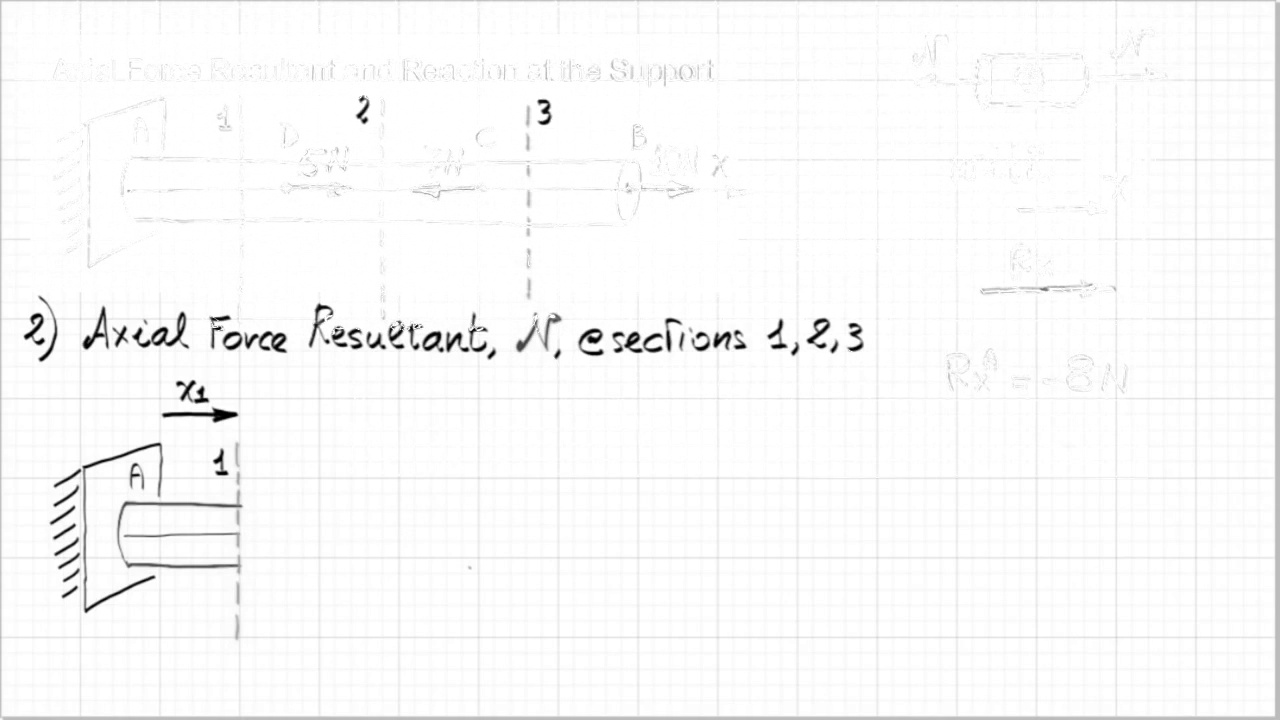 Axial Force Resultant and Reaction at the Support
N N
1 2 3
A D C B
5N 7N 10N x
x
Rx
2) Axial Force Resultant, N, @sections 1,2,3
RxA = -8N
x1
A 1